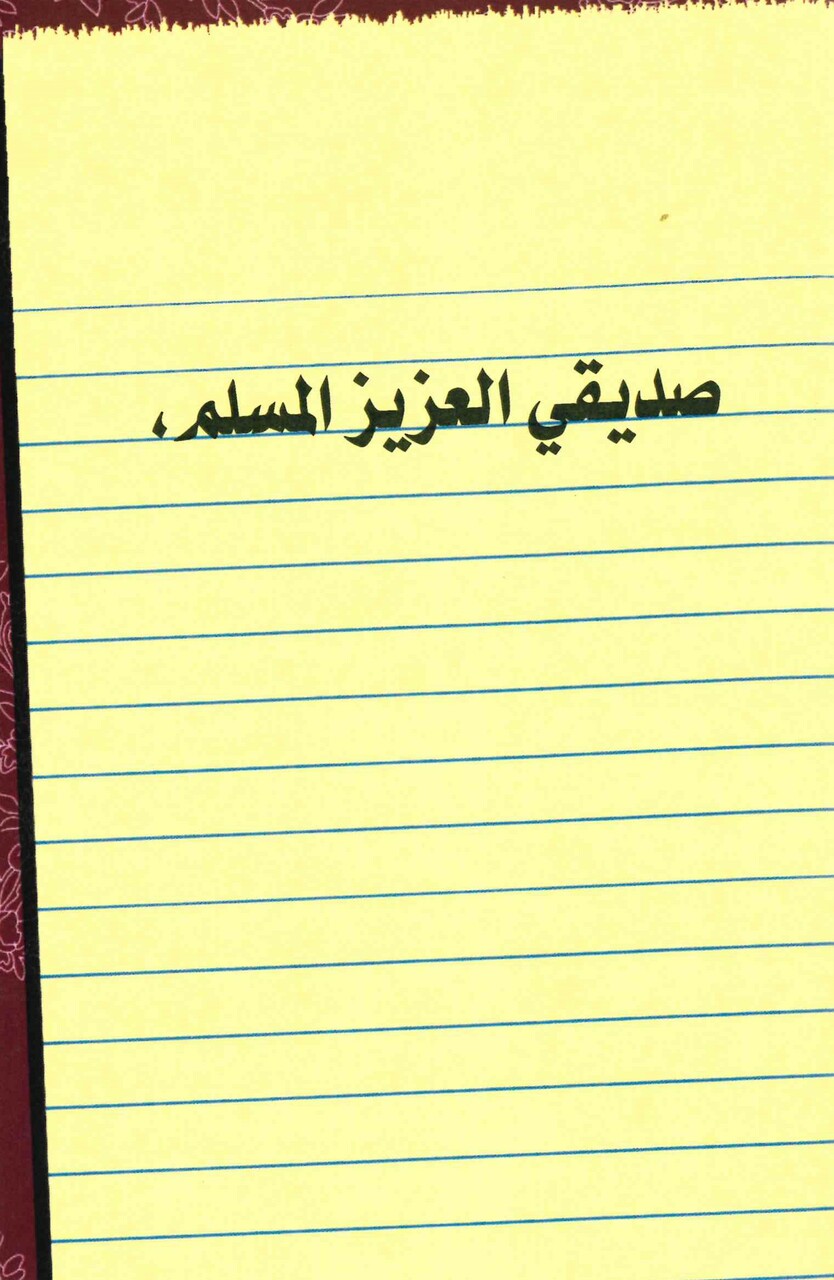 صديقي العزيز المسلم،